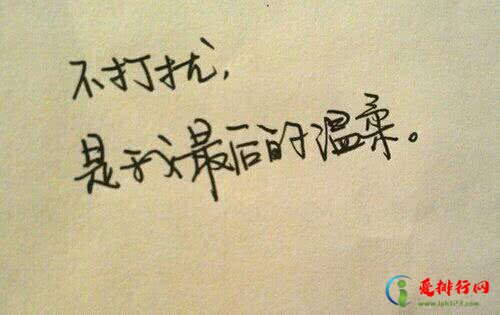 不打扰,
是我最后的温柔。
爱排行网
www.iph123.com